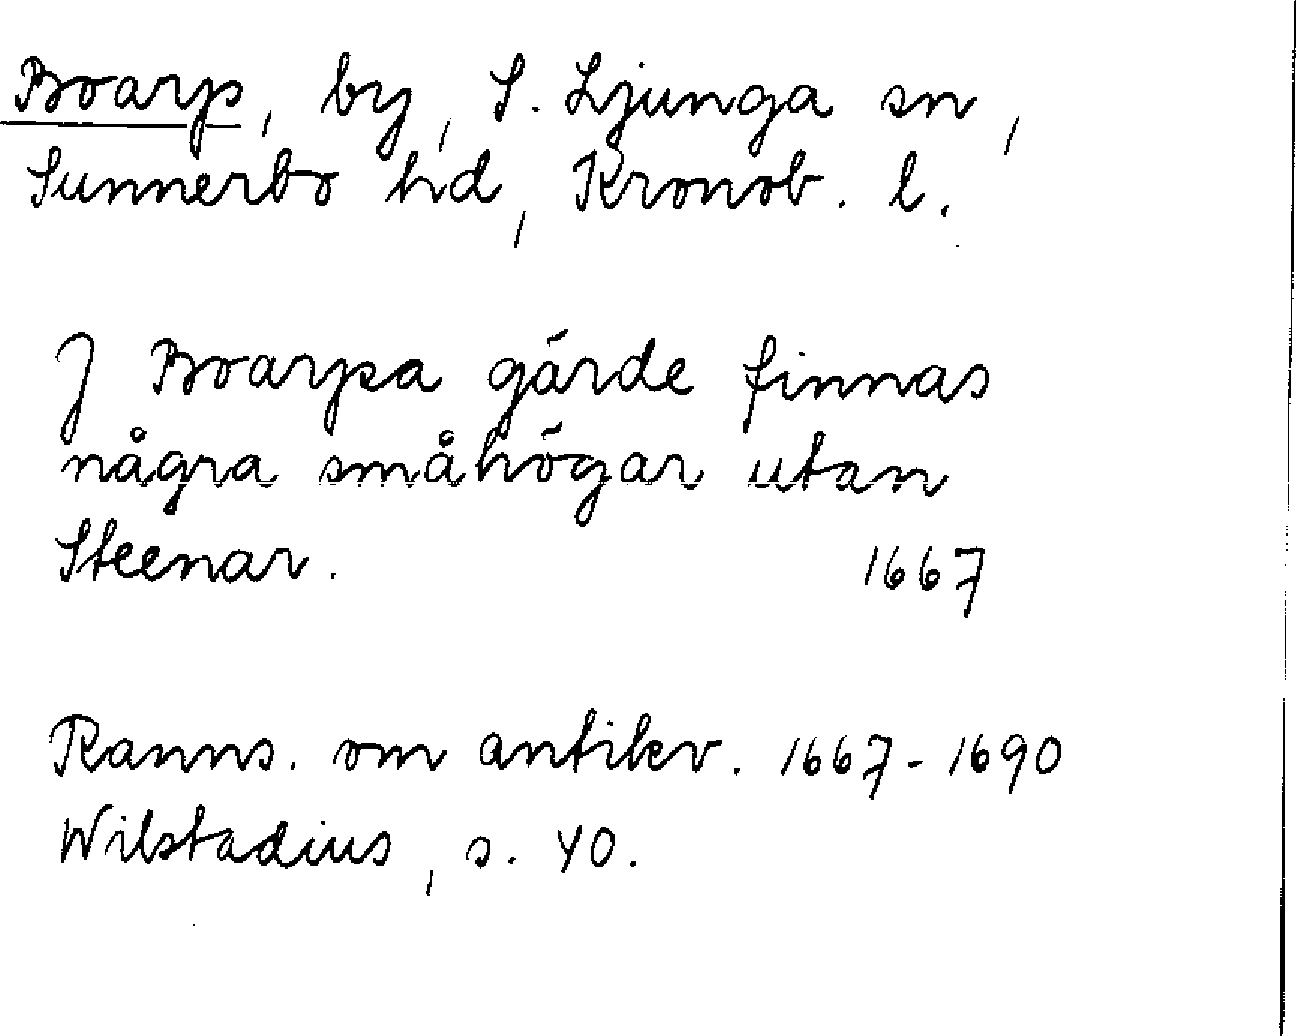 Boarp, by, S. Ljunga sn,
Sunnerbo hd, Kronob. l.
J Boarpa gärde finnas
några småhögar utan
Steenar. 1667
Ranns. om antikv. 1667-1690
Wilstadius, s. 40.